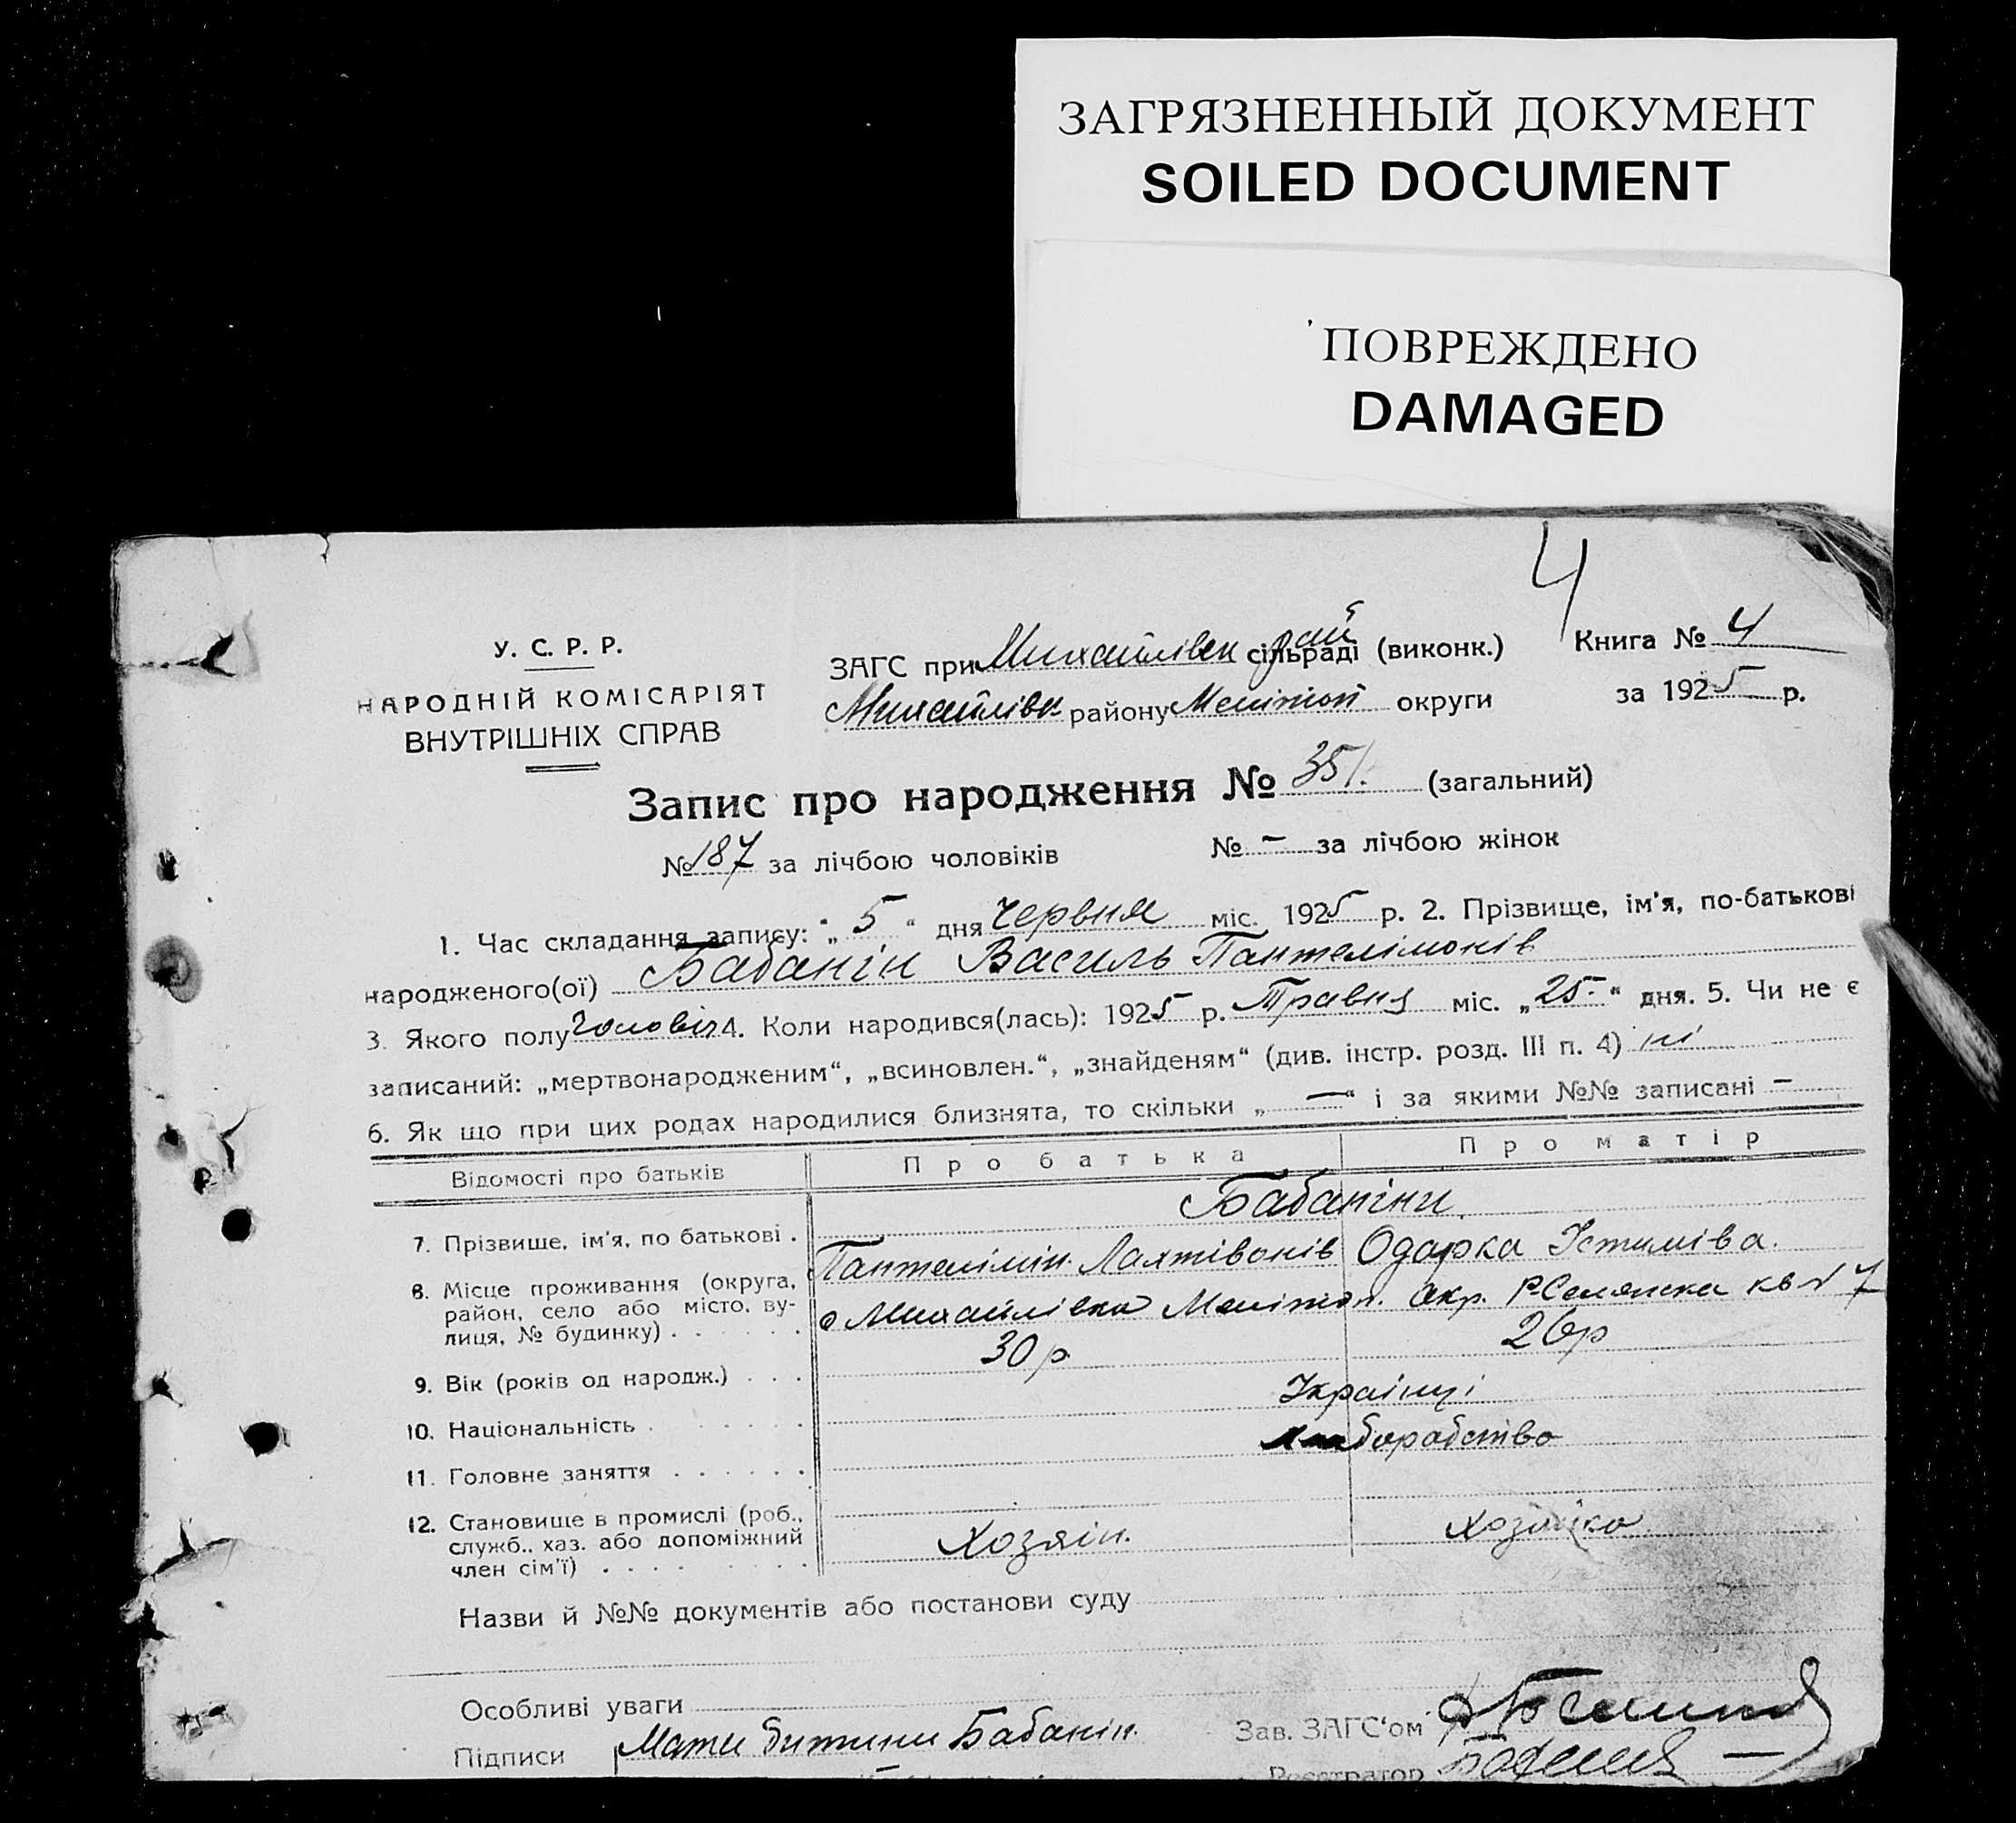 ЗАГРЯЗНЕННЫЙ ДОКУМЕНТ
SOILED DOCUMENT
ПОВРЕЖДЕНО
DAMAGED
4
У. С. Р. Р.
НАРОДНІЙ КОМІСАРІЯТ
ВНУТРІШНІХ СПРАВ
ЗАГС при Михайлівск рай сільраді (виконк.) Книга № 4
Михайлівк району Меліптоп округи за 1925 р.
Запис про народження № 351. (загальний)
№ 187 за лічбою чоловіків № – за лічбою жінок
1. Час складання запису: „ 5 “ дня Червня міс. 1925 р. 2. Прізвище, ім'я, по-батькові
народженого(ої) Бабанін Василь Пантелімонів
3. Якого полу Чоловіч 4. Коли народився(лась): 1925 р. Травня міс. „25-“ дня. 5. Чи не є
записаний: „мертвонародженим“, „всиновлен.“, „знайденям“ (див. інстр. розд. III п. 4) ні
6. Як що при цих родах народилися близнята, то скільки „ — “ і за якими №№ записані –
Відомості про батьків Про батька Про матір
Бабаніни.
7. Прізвище, ім'я, по батькові . Пантелімін Одарка Устиміва.
8. Місце проживання (округа,
район, село або місто, ву-
лиця, № будинку) . . . . . . с Михайлівка Меліптоп. окр. кв № 7
9. Вік (років од народж.) . . . 30 р 26р
10. Національність . . . . . . . Українці
11. Головне заняття . . . . . . хліборобство
12. Становище в промислі (роб.,
служб., хаз. або допоміжний
член сім'ї) . . . . . . . . Хозяін. Хозяйка
Назви й №№ документів або постанови суду
Особливі уваги
Підписи Мати дитини Бабанін. Зав. ЗАГС'ом
Реєстратор